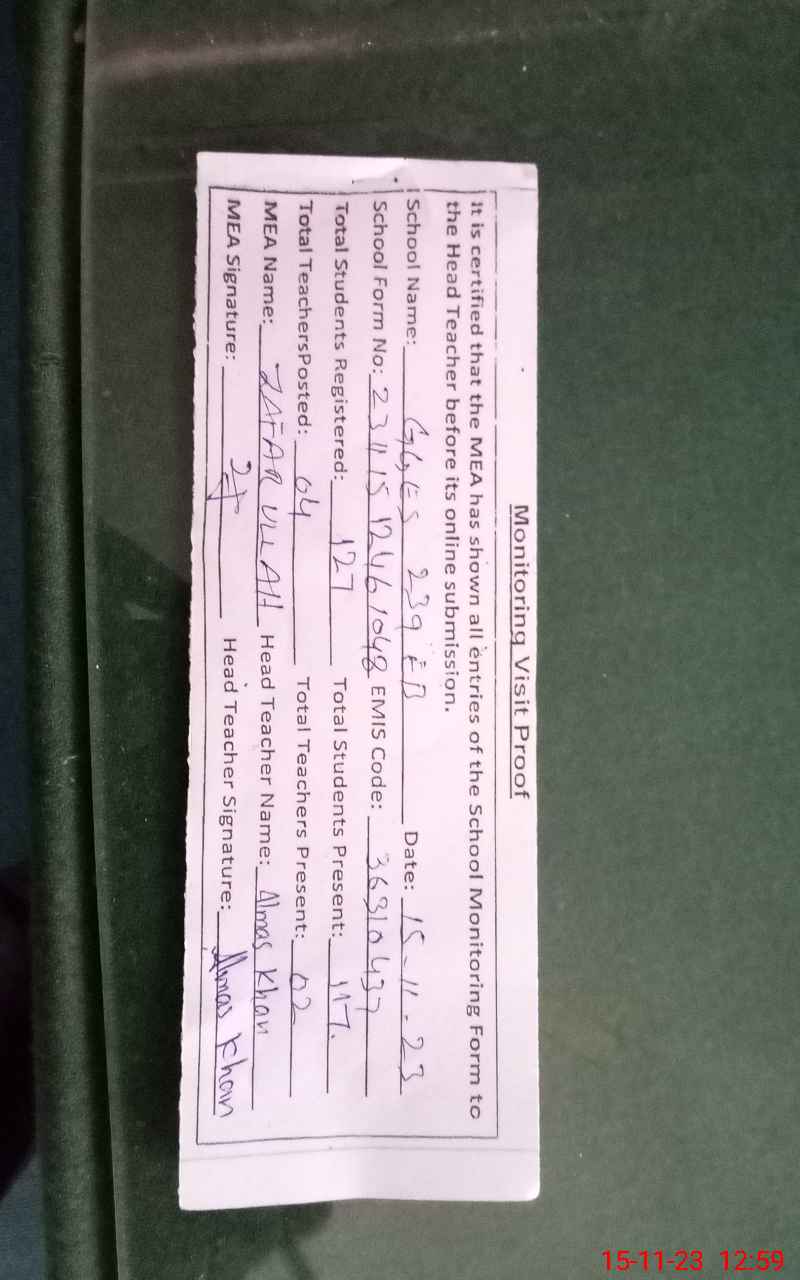 Monitoring Visit Proof
It is certified that the MEA has shown all entries of the School Monitoring Form to
the Head Teacher before its online submission.
School Name: GGES 239 EB Date: 15-11-23
School Form No: 231115 12461048 EMIS Code: 36310437
Total Students Registered: 127 Total Students Present: 117.
Total TeachersPosted: 04 Total Teachers Present: 02
MEA Name: ZAFAR ULLAH Head Teacher Name: Almas Khan
MEA Signature: Head Teacher Signature: Almas Khan
15-11-23 12:59